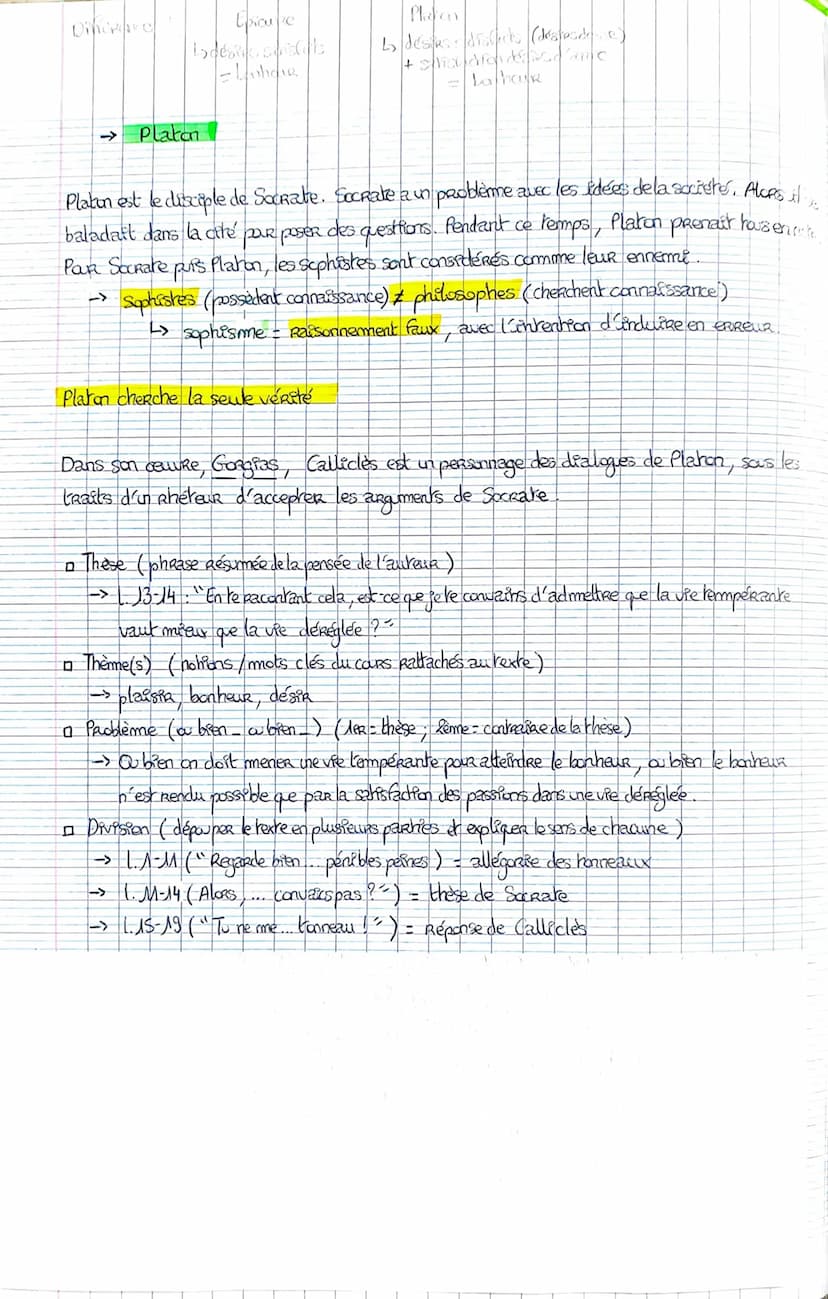 Différence
Epicure
Platon
↳ désirs
= bonheur
↳ désirs
+
= bonheur
→ Platon
Platon est le disciple de Socrate. Socrate a un problème avec les idées de la société. Alors il
baladait dans la cité pour poser des questions. Pendant ce temps, Platon prenait tous en
Par Socrate puis Platon, les sophistes sont considérés comme leur ennemi.
→ Sophistes (possèdent connaissance) ≠ philosophes (cherchent connaissance)
↳ sophisme = raisonnement faux, avec l'intention d'induire en erreur.
Platon cherche la seule vérité
Dans son œuvre, Gorgias, Calliclès est un personnage des dialogues de Platon, sous les
traits d'un rhéteur d'accepter les arguments de Socrate.
▫ Thèse (phrase résumée de la pensée de l'auteur)
→ L.13-14 : "En te racontant cela, est-ce que je te convaincs d'admettre que la vie tempérante
vaut mieux que la vie déréglée ?"
▫ Thème(s) (notions/mots clés du cours rattachés au texte)
→ plaisir, bonheur, désir
▫ Problème (ou bien _ ou bien _) (1er = thèse ; 2ème = contraire de la thèse)
→ Ou bien on doit mener une vie tempérante pour atteindre le bonheur, ou bien le bonheur
n'est rendu possible que par la satisfaction des passions dans une vie déréglée.
▫ Division (découper le texte en plusieurs parties et expliquer le sens de chacune)
→ l.1-11 ("Regarde bien... pénibles peines) = allégorie des tonneaux
→ l.11-14 (Alors, ... convaincs pas ?") = thèse de Socrate
→ l.15-19 ("Tu ne me... tonneau !") = Réponse de Calliclès